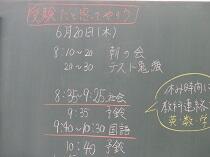 受験だと思ってやろう
6月20日(木)
8:10~20 朝の会
20~30 テスト勉強
8:35~9:25 社会
9:35 予鈴
9:40~10:30 国語
10:40 予鈴
休み時間に
教科連絡
英数学